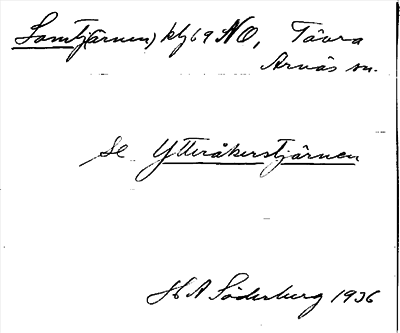 Lomtj(ärnen) klj 69 NO, Tävra
Arnäs sn.
Se Ytteråkerstjärnen
H A Söderburg 1936